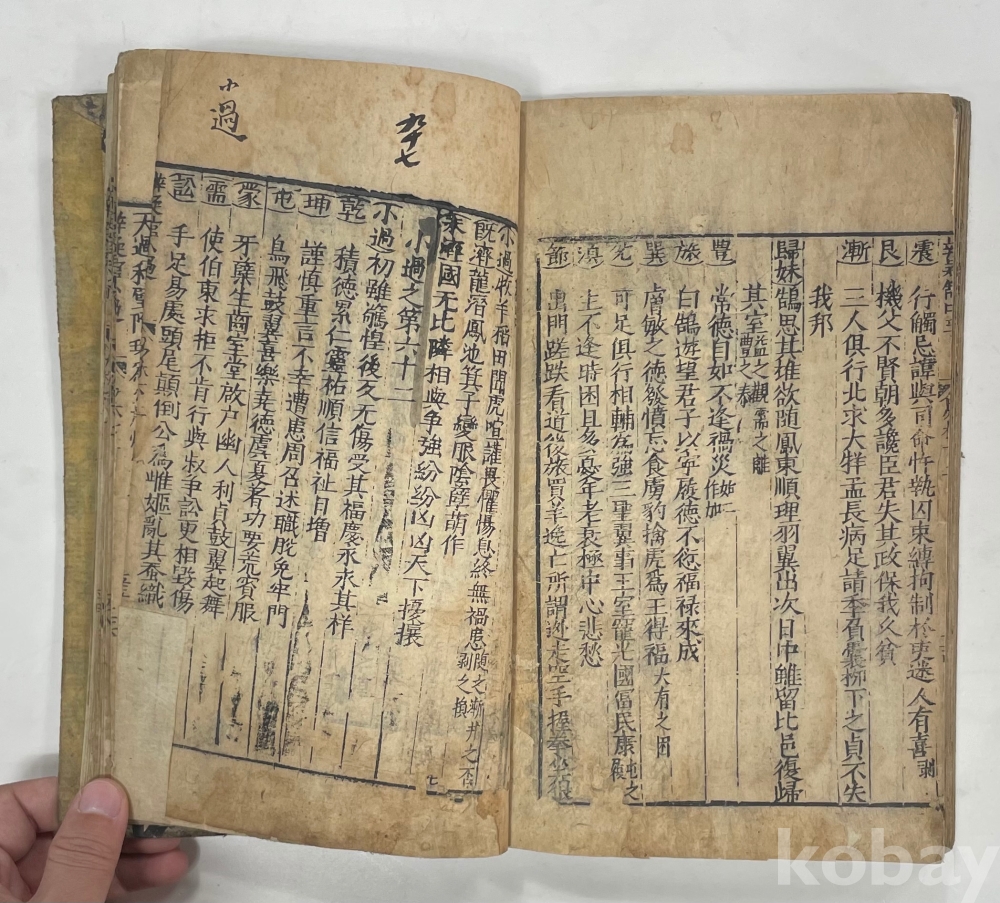 震 行觸忌諱與司命忤執囚束縛拘制於吏遂人有喜
艮 機父不賢朝多讒臣君失其政保我久貧
漸 三人俱行北求大牂孟長病足請季負囊柳下之貞不失
我邦
歸妹 鵠思其雄欲随鳳東順理羽翼出次日中雖留比邑復歸
其室 益之觀需之離豐之泰
豐 常德自如不逢禍災
旅 白鵠遊望君子以寧履德不愆福禄來成
巽 膚敏之德發憤忘食虜豹擒虎爲王得福 大有之困
兌 可足俱行相輔爲強三聖翼事王室寵光國富民康 屯之履
渙 生不逢時困且多憂年老衰極中心悲愁
節 出門蹉跌看道後旅買羊挽亡所謂逃走空手握拳坐恨
九十七
小過
小過 牧羊稻田聞虎喧讙畏懼惕息終無禍患 随之漸井之否剥之損
既濟 龍潛鳳池箕子變服陰孽萌作
未濟 國无比隣相與争強紛紛凶凶天下擾攘
小過之第六十二
小過 初雖驚惶後乆无傷受其福慶永永其祥
乾 積德累仁靈祐順信福祉日增
坤 謹慎重言不幸遭患周召述職脫免牢門
屯 鳥飛鼓翼喜樂堯德虞夏美功要荒賓服
蒙 牙孽生齒室堂啟户幽人利貞鼓翼起舞
需 使伯東求拒不肯行與叔争訟更相毀傷
訟 手足易處頭尾顛倒公爲雌嫗亂其蚕織
kobay